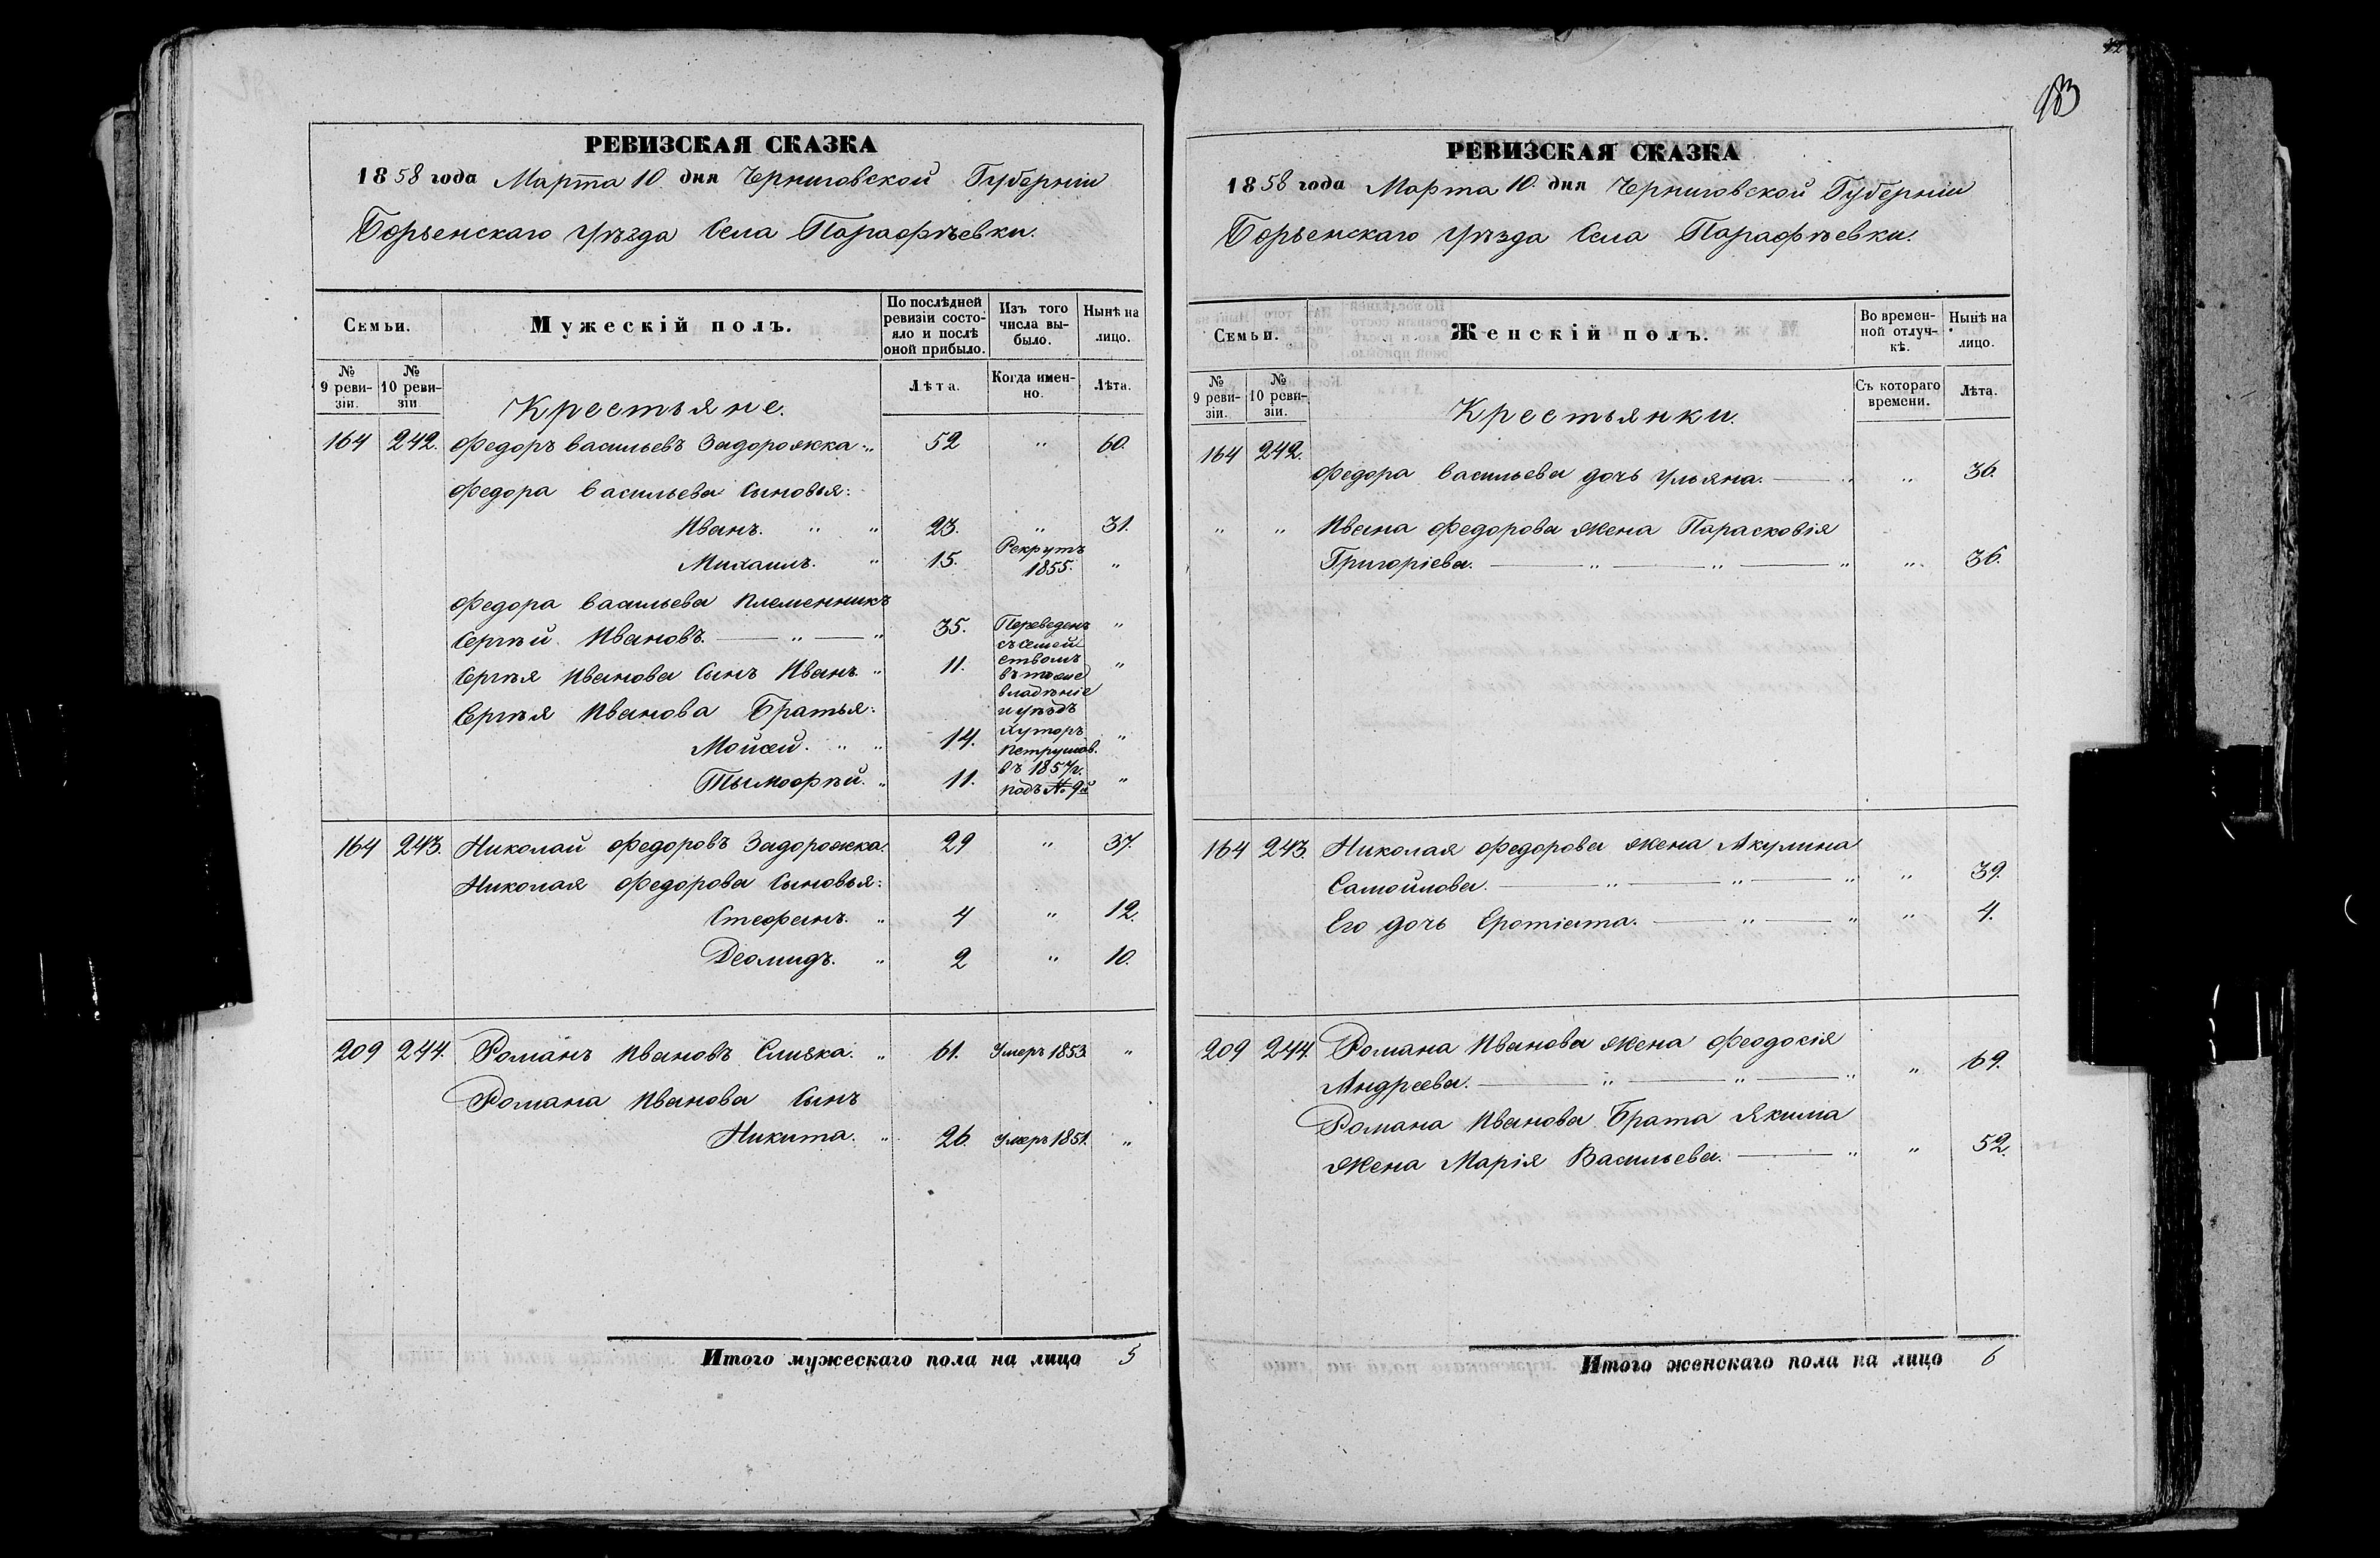 РЕВИЗСКАЯ СКАЗКА
1858 года Марта 10 дня Черниговской Губерніи
Борзенскаго Уѣзда Села Парафѣевки.
Семьи.
Мужескій полъ.
По послѣдней ревизіи состояло и послѣ оной прибыло.
Изъ того числа выбыло.
Нынѣ на лицо.
№ 9 ревизіи.
№ 10 ревизіи
Лѣта.
Когда именно.
Лѣта.
Крестьяне.
164 242. Федоръ Васильевъ Задорожка " 52 " 60.
Федора Васильева Сыновья:
Иванъ. " " 23. " 31.
Михаилъ. " 15. Рекрутъ 1855. "
Федора Васильева племенникъ
Сергѣй Ивановъ. — " — " 35. "
Сергѣя Иванова Сынъ Иванъ. " 11. "
Сергѣя Иванова Братья:
Мойсей. " " 14. "
Тымофѣй. " 11. "
Переведенъ
съ семей
ствомъ
въ тоже
владѣніе
и уѣздъ
Хуторъ
Петрушов.
въ 1857 г.
подъ № 9й
164 243. Николай Федоровъ Задорожка. 29 " 37.
Николая Федорова Сыновья:
Стефанъ. " 4 " 12.
Деомидъ. " 2 " 10.
209 244. Романъ Ивановъ Слизка. " 61. Умеръ 1853 "
Романа Иванова Сынъ
Никита. " 26. Умеръ 1851. "
Итого мужескаго пола на лицо 5
42
183
РЕВИЗСКАЯ СКАЗКА
1858 года Марта 10 дня Черниговской Губерніи
Борзенскаго Уѣзда Села Парафѣевки.
Семьи.
Женскій полъ.
Во временной отлучкѣ.
Нынѣ на лицо.
№ 9 ревизіи.
№ 10 ревизіи.
Съ котораго времени.
Лѣта.
Крестьянки.
164 242.
Федора Васильева дочь Ульяна. — " " 36.
" " Ивана Федорова жена Парасковія
Григоріева. — " — " — " " 36.
164 243. Николая Федорова жена Акулина
Самойлова. — " — " — " " 39.
Его дочь Еротіята. — " — " " 4.
209 244. Романа Иванова жена Феодосія
Андреева. — " — " — " " 69.
Романа Иванова Брата Якима
жена Марія Васильева. — " " 52.
Итого женскаго пола на лицо 6